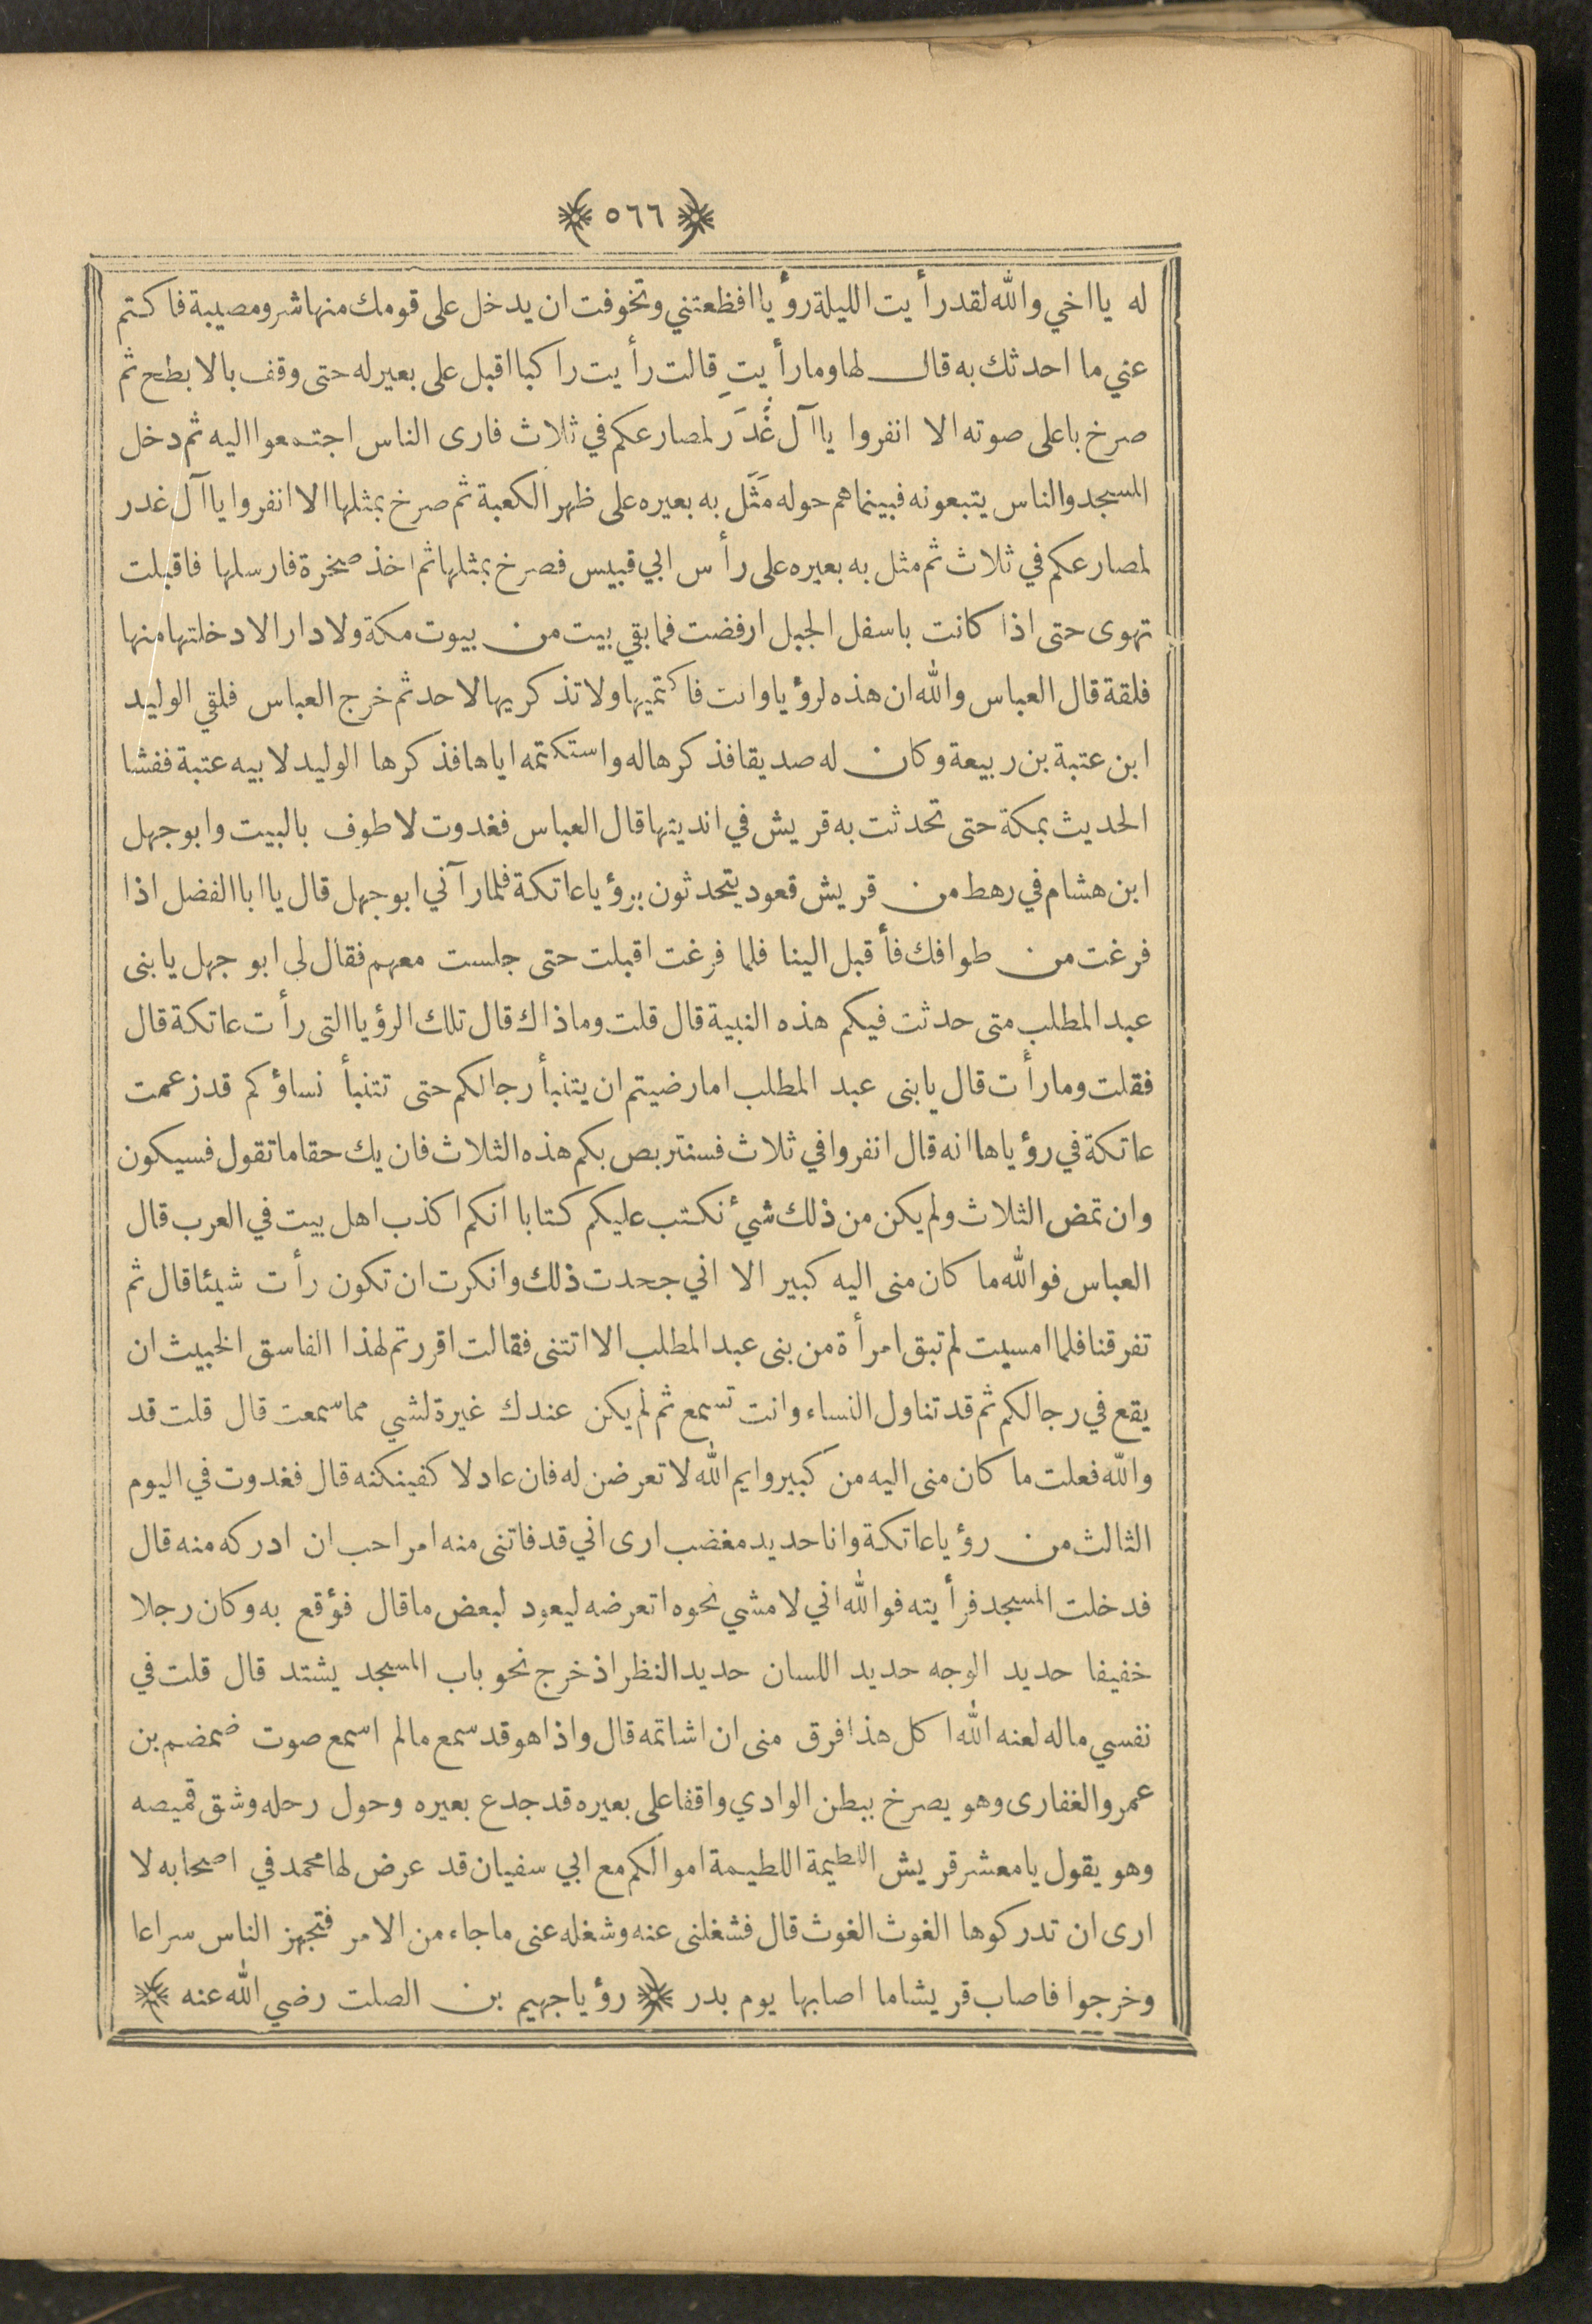 ﴿ ٥٦٦ ﴾
له يا اخي والله لقد رأيت الليلة رؤيا افظعتني وتخوفت ان يدخل على قومك منها شر ومصيبة فاكتم
عني ما احدثك به قال لها وما رأيتِ قالت رأيت راكبا اقبل على بعير له حتى وقف بالابطح ثم
صرخ باعلى صوته الا انفروا يا آل غُدَرَ لمصارعكم في ثلاث فارى الناس اجتمعوا اليه ثم دخل
المسجد والناس يتبعونه فبينما هم حوله مَثَل به بعيره على ظهر الكعبة ثم صرخ بمثلها الا انفروا يا آل غدر
لمصارعكم في ثلاث ثم مثل به بعيره على رأس ابي قبيس فصرخ بمثلها ثم اخذ صخرة فارسلها فاقبلت
تهوى حتى اذا كانت باسفل الجبل ارفضت فما بقي بيت من بيوت مكة ولا دار الا دخلتها منها
فلقة قال العباس والله ان هذه لرؤيا وانت فاكتميها ولا تذكريها لاحد ثم خرج العباس فلقي الوليد
ابن عتبة بن ربيعة وكان له صديقا فذكرها له واستكتمه اياها فذكرها الوليد لابيه عتبة ففشا
الحديث بمكة حتى تحدثت به قريش في انديتها قال العباس فغدوت لاطوف بالبيت وابو جهل
ابن هشام في رهط من قريش قعود يتحدثون برؤيا عاتكة فلما رآني ابو جهل قال يا ابا الفضل اذا
فرغت من طوافك فأقبل الينا فلما فرغت اقبلت حتى جلست معهم فقال لى ابو جهل يا بنى
عبد المطلب متى حدثت فيكم هذه النبية قال قلت وما ذاك قال تلك الرؤيا التى رأت عاتكة قال
فقلت وما رأت قال يا بنى عبد المطلب اما رضيتم ان يتنبأ رجالكم حتى تتنبأ نساؤكم قد زعمت
عاتكة في رؤياها انه قال انفروا في ثلاث فسنتربص بكم هذه الثلاث فان يك حقا ما تقول فسيكون
وان تمض الثلاث ولم يكن من ذلك شيء نكتب عليكم كتابا انكم اكذب اهل بيت في العرب قال
العباس فوالله ما كان منى اليه كبير الا اني جحدت ذلك وانكرت ان تكون رأت شيئا قال ثم
تفرقنا فلما امسيت لم تبق امرأة من بنى عبد المطلب الا اتتنى فقالت اقررتم لهذا الفاسق الخبيث ان
يقع في رجالكم ثم قد تناول النساء وانت تسمع ثم لم يكن عندك غيرة لشي مما سمعت قال قلت قد
والله فعلت ما كان منى اليه من كبير وايم الله لاتعرضن له فان عاد لاكفينكنه قال فغدوت في اليوم
الثالث من رؤيا عاتكة وانا حديد مغضب ارى اني قد فاتنى منه امر احب ان ادركه منه قال
فدخلت المسجد فرأيته فوالله اني لامشي نحوه اتعرضه ليعود لبعض ما قال فؤقع به وكان رجلا
خفيفا حديد الوجه حديد اللسان حديد النظر اذ خرج نحو باب المسجد يشتد قال قلت في
نفسي ماله لعنه الله اكل هذا فرق منى ان اشاتمه قال واذا هو قد سمع مالم اسمع صوت ضمضم بن
عمرو الغفارى وهو يصرخ ببطن الوادي واقفا على بعيره قد جدع بعيره وحول رحله وشق قميصه
وهو يقول يا معشر قريش اللطيمة اللطيمة اموالكم مع ابي سفيان قد عرض لها محمد في اصحابه لا
ارى ان تدركوها الغوث الغوث قال فشغلنى عنه وشغله عنى ما جاء من الامر فتجهز الناس سراعا
وخرجوا فاصاب قريشا ما اصابها يوم بدر ﴿ رؤيا جهيم بن الصلت رضي الله عنه ﴾